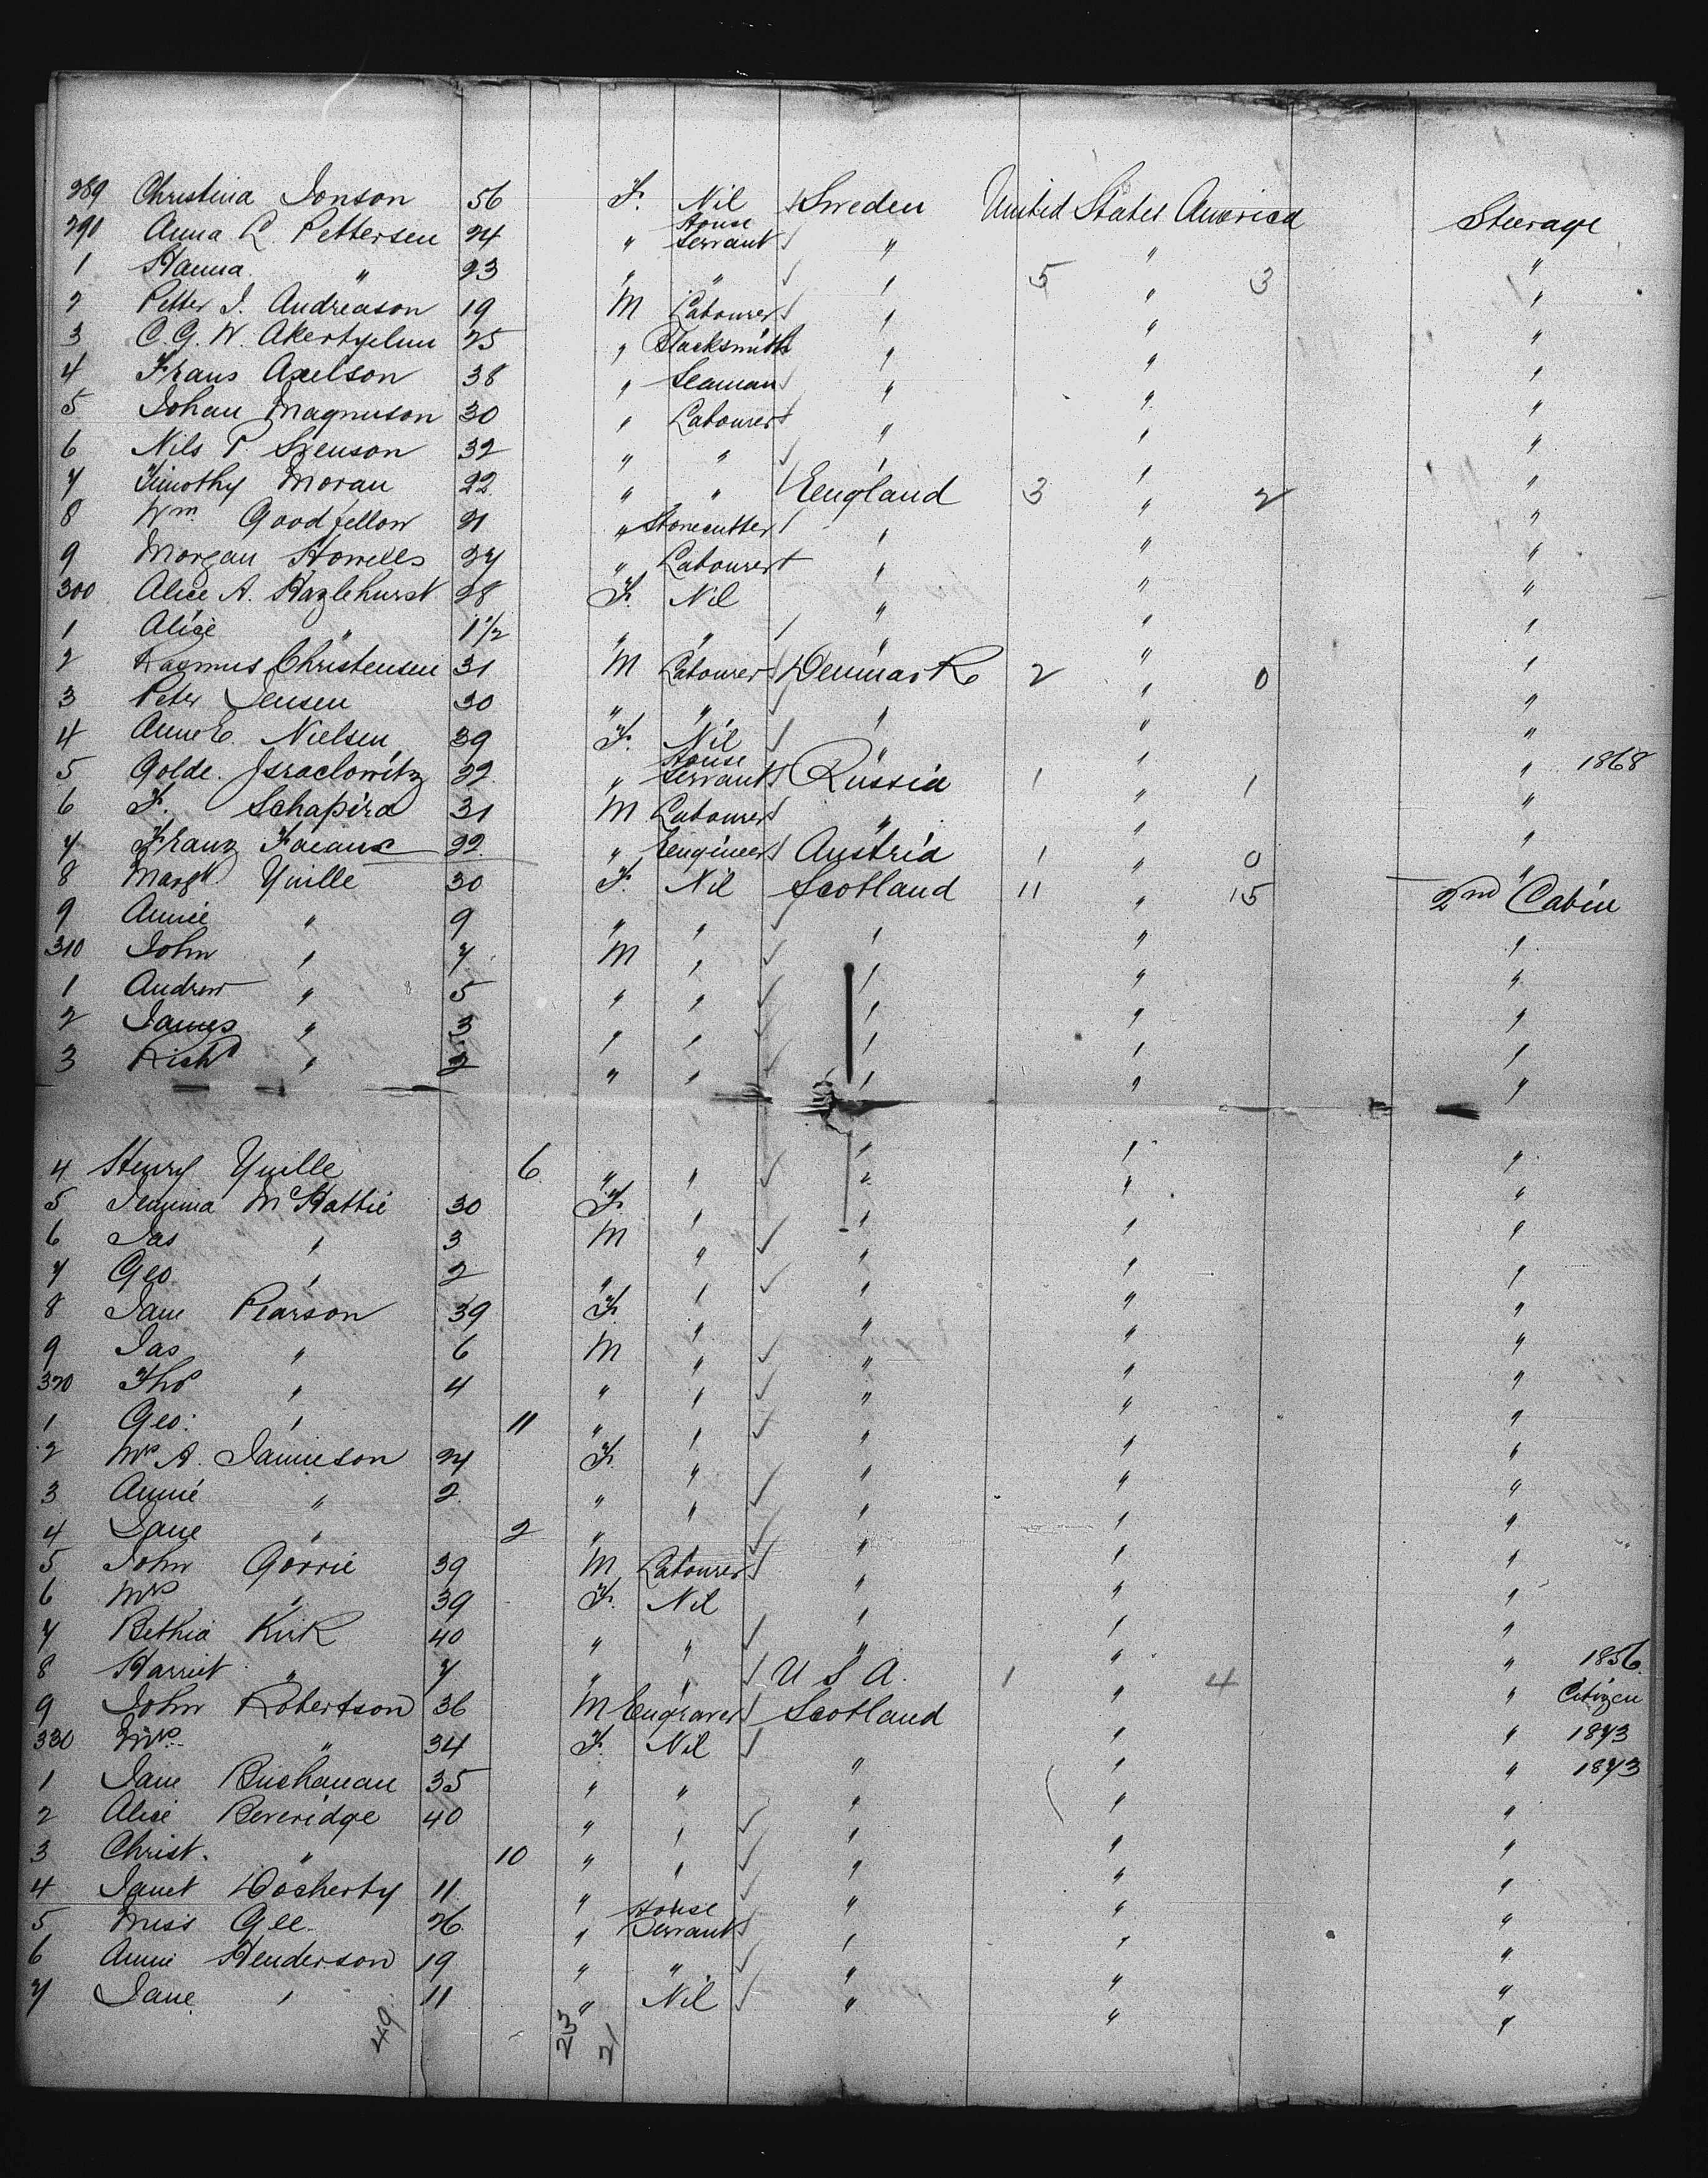 289 Christina Jonson 56 F. Nil Sweden United States America Steerage
290 Anna C. Pettersen 24 " House Servant " " "
1 Hanna " 23 " " " 5 " 3 "
2 Petter J. Andreason 19 M Labourer " " "
3 C. G. W. 25 " Blacksmith " " "
4 Frans Axelson 38 " Seaman " " "
5 Johan Magnuson 30 " Labourer " " "
6 Nils P. Svenson 32 " " " " "
7 Timothy Moran 22 " " England 3 " 2 "
8 Wm. Goodfellow 21 " Stonecutter " " "
9 Morgan Howells 37 " Labourer " " "
300 Alice A. Hazlehurst 28 F. Nil " " "
1 Alice " 1 1/2 " " " " "
2 Rasmus Christensen 31 M Labourer Denmark 2 " 0 "
3 Peter Jensen 30 " " " " "
4 Anne E. Nielsen 39 F. Nil " " "
5 Golde Israelowitz 22 " House Servant Russia 1 " 1 " 1868
6 F. Schapira 31 M Labourer " " "
7 Franz 22 " Engineer Austria 1 " 0 "
8 Margt. Yuille 30 F. Nil Scotland 11 " 15 2nd Cabin
9 Annie " 9 " " " " "
310 John " 7 M " " " "
1 Andrew " 5 " " " " "
2 James " 3 " " " " "
3 Richd " 2 " " " " "
4 Henry Yuille 6 " " " " "
5 Jemima McHattie 30 F. " " " "
6 Jas " 3 M " " " "
7 Geo. " 2 " " " " "
8 Jane Pearson 39 F. " " " "
9 Jas " 6 M " " " "
320 Thos " 4 " " " " "
1 Geo: " 11 " " " " "
2 Mrs A. Jamieson 24 F. " " " "
3 Annie " 2 " " " " "
4 Jane " 2 " " " " "
5 John Gorrie 39 M Labourer " " "
6 Mrs " 39 F. Nil " " "
7 Bethia Kirk 40 " " " " " 1856
8 Harriet " 7 " " U S A. 1 " 4 " Citizen
9 John Robertson 36 M Engraver Scotland " " 1873
330 Mrs " 34 F. Nil " " " 1873
1 Jane Buchanan 35 " " " " "
2 Alice Beveridge 40 " " " " "
3 Christ. " 10 " " " " "
4 Janet Docherty 11 " " " " "
5 Miss Gee 26 " House Servant " " "
6 Annie Henderson 19 " " " " "
7 Jane " 11 " Nil " " "
49 23 21